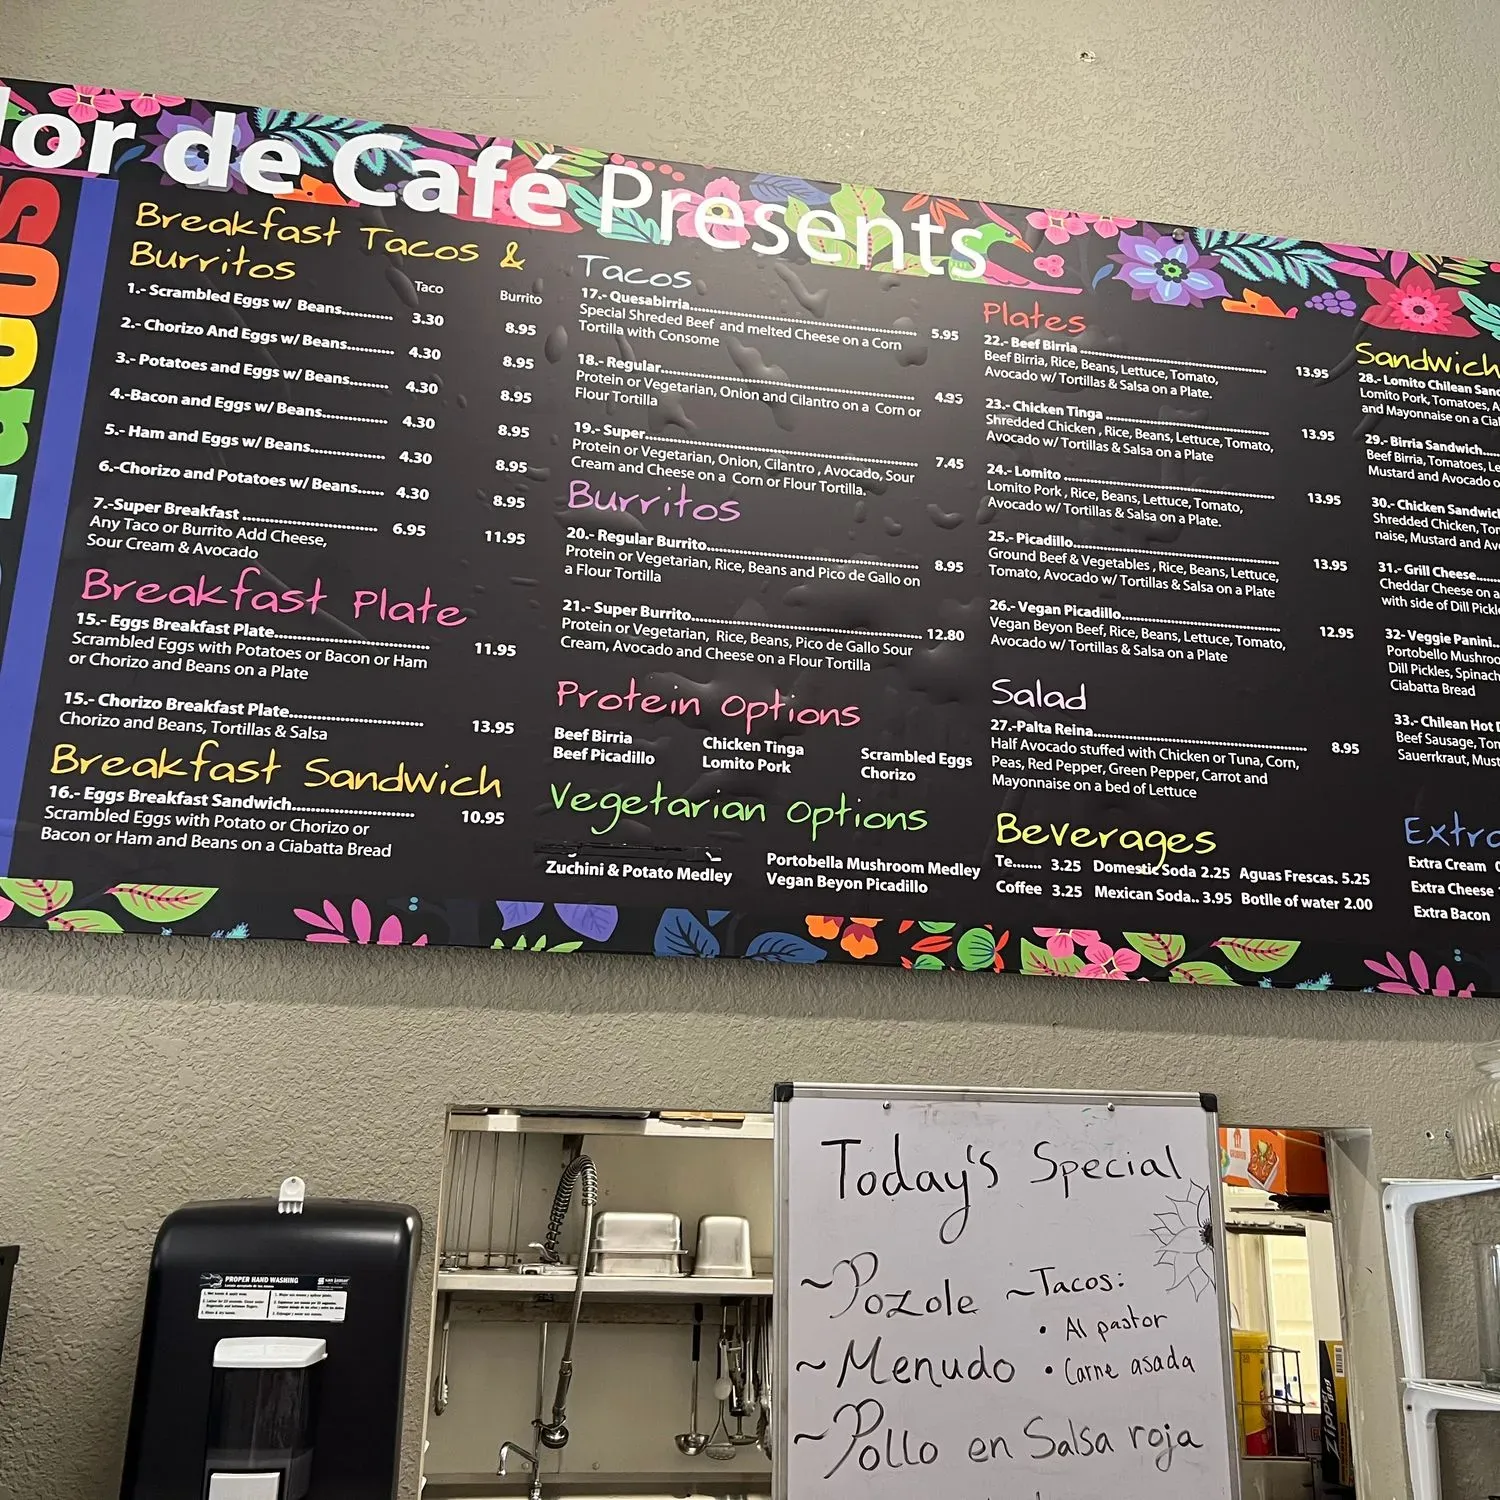 lor de Café Presents
Breakfast Tacos &
Burritos
Taco Burrito
1.- Scrambled Eggs w/ Beans............ 3.30 8.95
2.- Chorizo And Eggs w/ Beans........... 4.30 8.95
3.- Potatoes and Eggs w/ Beans........ 4.30 8.95
4.-Bacon and Eggs w/ Beans............... 4.30 8.95
5.- Ham and Eggs w/ Beans................ 4.30 8.95
6.-Chorizo and Potatoes w/ Beans...... 4.30 8.95
7.-Super Breakfast .............................. 6.95 11.95
Any Taco or Burrito Add Cheese,
Sour Cream & Avocado
Breakfast Plate
15.- Eggs Breakfast Plate.................................. 11.95
Scrambled Eggs with Potatoes or Bacon or Ham
or Chorizo and Beans on a Plate
15.- Chorizo Breakfast Plate.............................. 13.95
Chorizo and Beans, Tortillas & Salsa
Breakfast Sandwich
16.- Eggs Breakfast Sandwich........................... 10.95
Scrambled Eggs with Potato or Chorizo or
Bacon or Ham and Beans on a Ciabatta Bread
Tacos
17.- Quesabirria.................................................. 5.95
Special Shreded Beef and melted Cheese on a Corn
Tortilla with Consome
18.- Regular......................................................... 4.95
Protein or Vegetarian, Onion and Cilantro on a Corn or
Flour Tortilla
19.- Super............................................................ 7.45
Protein or Vegetarian, Onion, Cilantro , Avocado, Sour
Cream and Cheese on a Corn or Flour Tortilla.
Burritos
20.- Regular Burrito.............................................. 8.95
Protein or Vegetarian, Rice, Beans and Pico de Gallo on
a Flour Tortilla
21.- Super Burrito.................................................. 12.80
Protein or Vegetarian, Rice, Beans, Pico de Gallo Sour
Cream, Avocado and Cheese on a Flour Tortilla
Protein Options
Beef Birria Chicken Tinga Scrambled Eggs
Beef Picadillo Lomito Pork Chorizo
Vegetarian Options
Portobella Mushroom Medley
Zuchini & Potato Medley Vegan Beyon Picadillo
Plates
22.- Beef Birria .......................................... 13.95
Beef Birria, Rice, Beans, Lettuce, Tomato,
Avocado w/ Tortillas & Salsa on a Plate.
23.- Chicken Tinga ..................................... 13.95
Shredded Chicken , Rice, Beans, Lettuce, Tomato,
Avocado w/ Tortillas & Salsa on a Plate
24.- Lomito ................................................ 13.95
Lomito Pork , Rice, Beans, Lettuce, Tomato,
Avocado w/ Tortillas & Salsa on a Plate.
25.- Picadillo............................................... 13.95
Ground Beef & Vegetables , Rice, Beans, Lettuce,
Tomato, Avocado w/ Tortillas & Salsa on a Plate
26.- Vegan Picadillo..................................... 12.95
Vegan Beyon Beef, Rice, Beans, Lettuce, Tomato,
Avocado w/ Tortillas & Salsa on a Plate
Salad
27.-Palta Reina................................................ 8.95
Half Avocado stuffed with Chicken or Tuna, Corn,
Peas, Red Pepper, Green Pepper, Carrot and
Mayonnaise on a bed of Lettuce
Beverages
Te....... 3.25 Domestic Soda 2.25 Aguas Frescas. 5.25
Coffee 3.25 Mexican Soda.. 3.95 Botlle of water 2.00
Sandwich
28.- Lomito Chilean Sand
Lomito Pork, Tomatoes, A
and Mayonnaise on a Cia
29.- Birria Sandwich......
Beef Birria, Tomatoes, Le
Mustard and Avocado o
30.- Chicken Sandwic
Shredded Chicken, Tom
naise, Mustard and Avo
31.- Grill Cheese.......
Cheddar Cheese on a
with side of Dill Pickl
32- Veggie Panini...
Portobello Mushroo
Dill Pickles, Spinach
Ciabatta Bread
33.- Chilean Hot D
Beef Sausage, Tom
Sauerrkraut, Must
Extra
Extra Cream
Extra Cheese
Extra Bacon
PROPER HAND WASHING
Today's Special
~Pozole
~Menudo
~Pollo en Salsa roja
~Tacos:
• Al pastor
• Carne asada